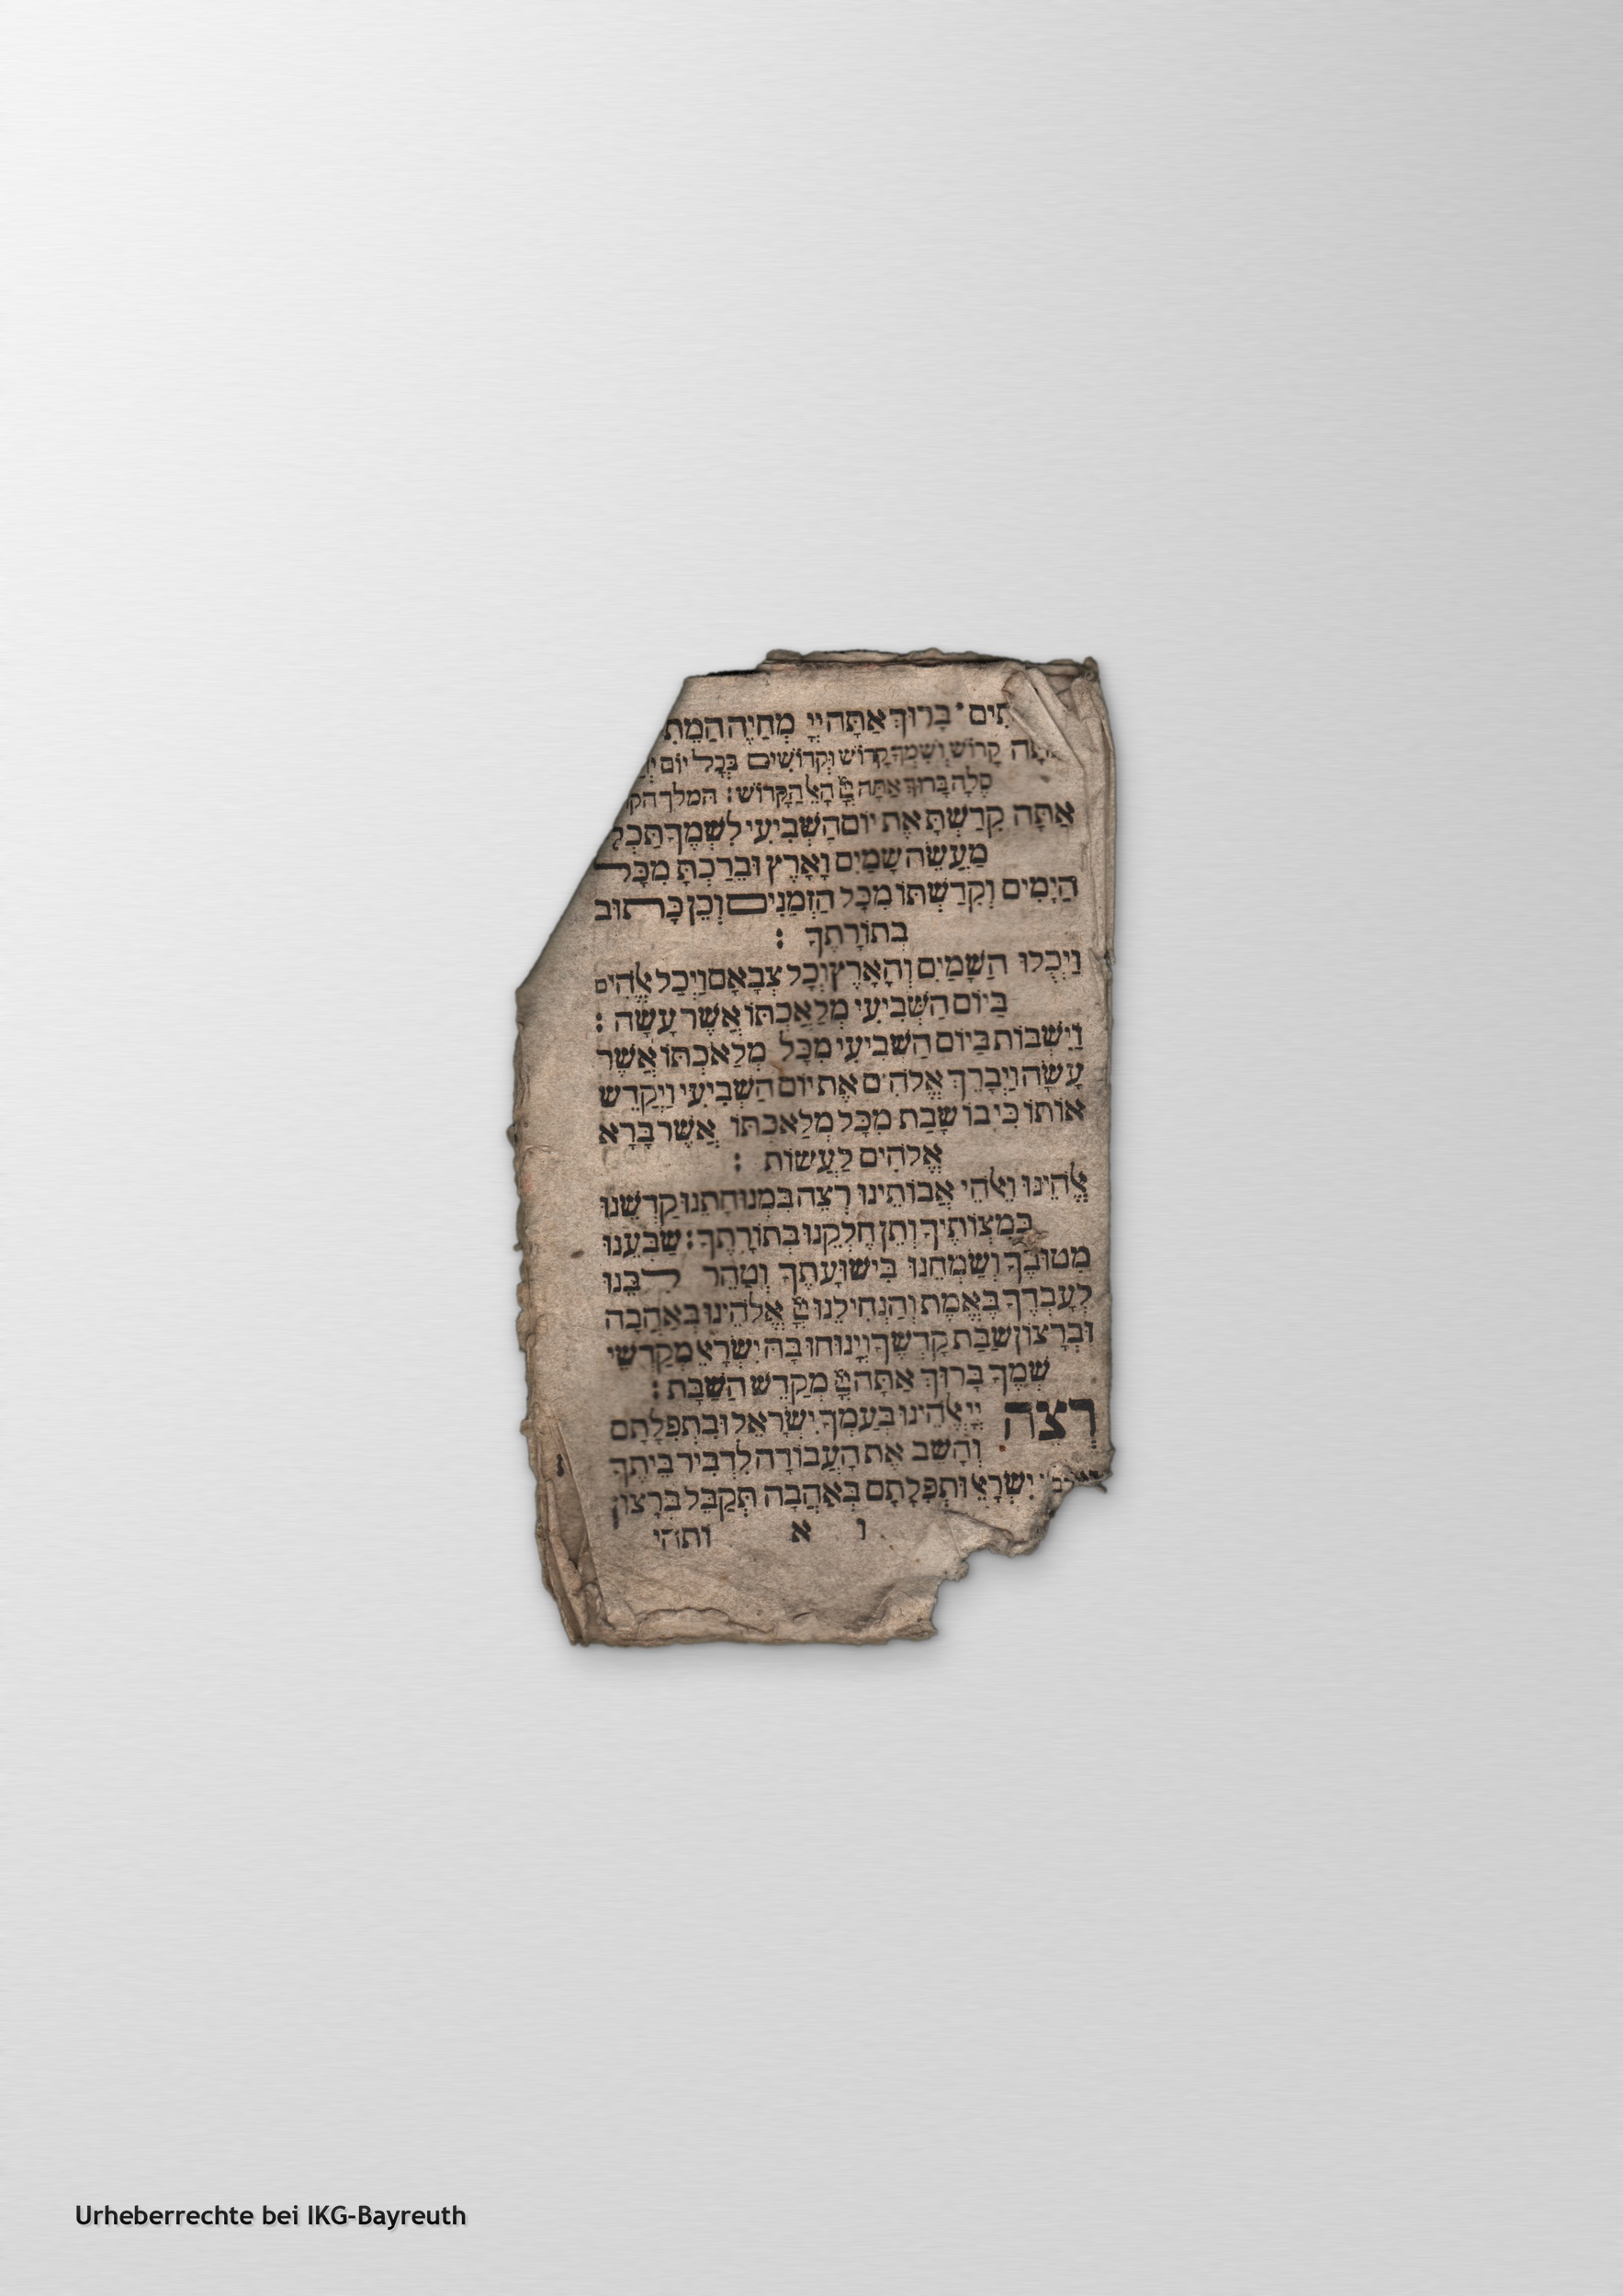 תִים ּ בָּרוּךְ אַתָּה יְיָ מְחַיֵּה הַמֵּתִ
קָדוֹשׁ וְשִׁמְךָ קָדוֹשׁ וּקְדוֹשִׁים בְּכָל יוֹם
סֶלָה בָּרוּךְ אַתָּה יְיָ הָאֵל הַקָּדוֹשׁ : המלך הק
אַתָּה קִדַּשְׁתָּ אֶת יוֹם הַשְּׁבִיעִי לִשְׁמֶךָ תַּכְלִ
מַעֲשֵׂה שָׁמַיִם וָאָרֶץ וּבֵרַכְתָּ מִכָּל
הַיָּמִים וְקִדַּשְׁתּוֹ מִכָּל הַזְּמַנִּים וְכֵן כָּתוּב
בְּתוֹרָתֶךָ :
וַיְכֻלּוּ הַשָּׁמַיִם וְהָאָרֶץ וְכָל צְבָאָם וַיְכַל אֱלֹהִים
בַּיּוֹם הַשְּׁבִיעִי מְלַאכְתּוֹ אֲשֶׁר עָשָׂה :
וַיִּשְׁבּוֹת בַּיּוֹם הַשְּׁבִיעִי מִכָּל מְלַאכְתּוֹ אֲשֶׁר
עָשָׂה וַיְבָרֶךְ אֱלֹהִים אֶת יוֹם הַשְּׁבִיעִי וַיְקַדֵּשׁ
אוֹתוֹ כִּי בוֹ שָׁבַת מִכָּל מְלַאכְתּוֹ אֲשֶׁר בָּרָא
אֱלֹהִים לַעֲשׂוֹת :
אֱלֹהֵינוּ וֵאלֹהֵי אֲבוֹתֵינוּ רְצֵה בִּמְנוּחָתֵנוּ קַדְּשֵׁנוּ
בְּמִצְוֹתֶיךָ וְתֵן חֶלְקֵנוּ בְּתוֹרָתֶךָ : שַׂבְּעֵנוּ
מִטּוּבֶךָ וְשַׂמְּחֵנוּ בִּישׁוּעָתֶךָ וְטַהֵר לִבֵּנוּ
לְעָבְדְּךָ בֶּאֱמֶת וְהַנְחִילֵנוּ יְיָ אֱלֹהֵינוּ בְּאַהֲבָה
וּבְרָצוֹן שַׁבַּת קָדְשֶׁךָ וְיָנוּחוּ בָהּ יִשְׂרָאֵל מְקַדְּשֵׁי
שְׁמֶךָ בָּרוּךְ אַתָּה יְיָ מְקַדֵּשׁ הַשַּׁבָּת :
רְצֵה יְיָ אֱלֹהֵינוּ בְּעַמְּךָ יִשְׂרָאֵל וּבִתְפִלָּתָם
וְהָשֵׁב אֶת הָעֲבוֹדָה לִדְבִיר בֵּיתֶךָ
יִשְׂרָאֵל וּתְפִלָּתָם בְּאַהֲבָה תְּקַבֵּל בְּרָצוֹן
ו א ותהי
Urheberrechte bei IKG-Bayreuth